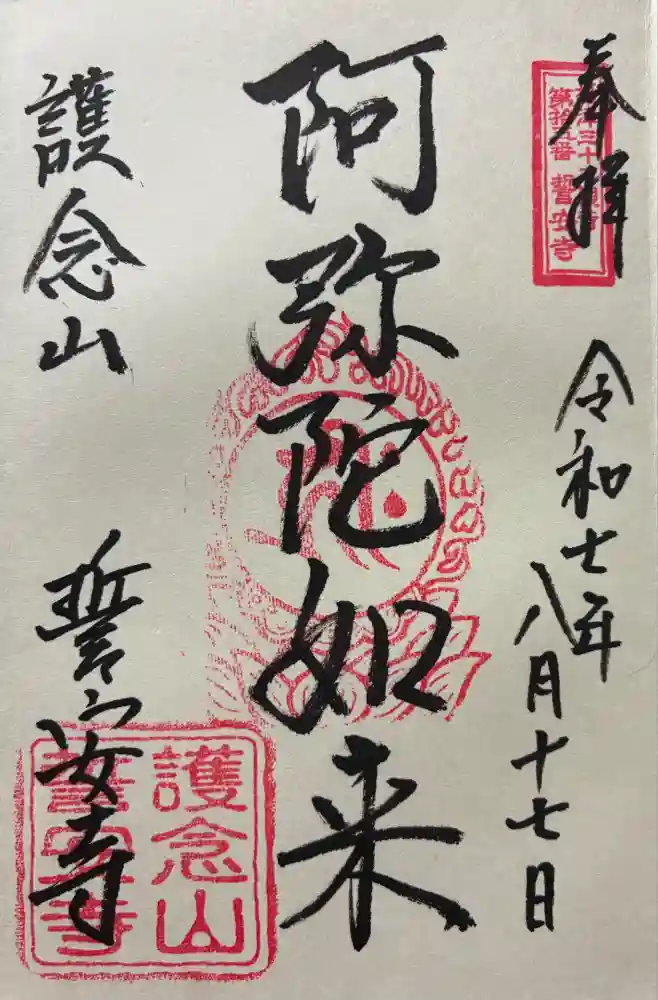 奉拝
令和七年
八月十七日
阿弥陀如来
護念山
誓安寺
第拾五番 誓安寺
護念山
誓安寺